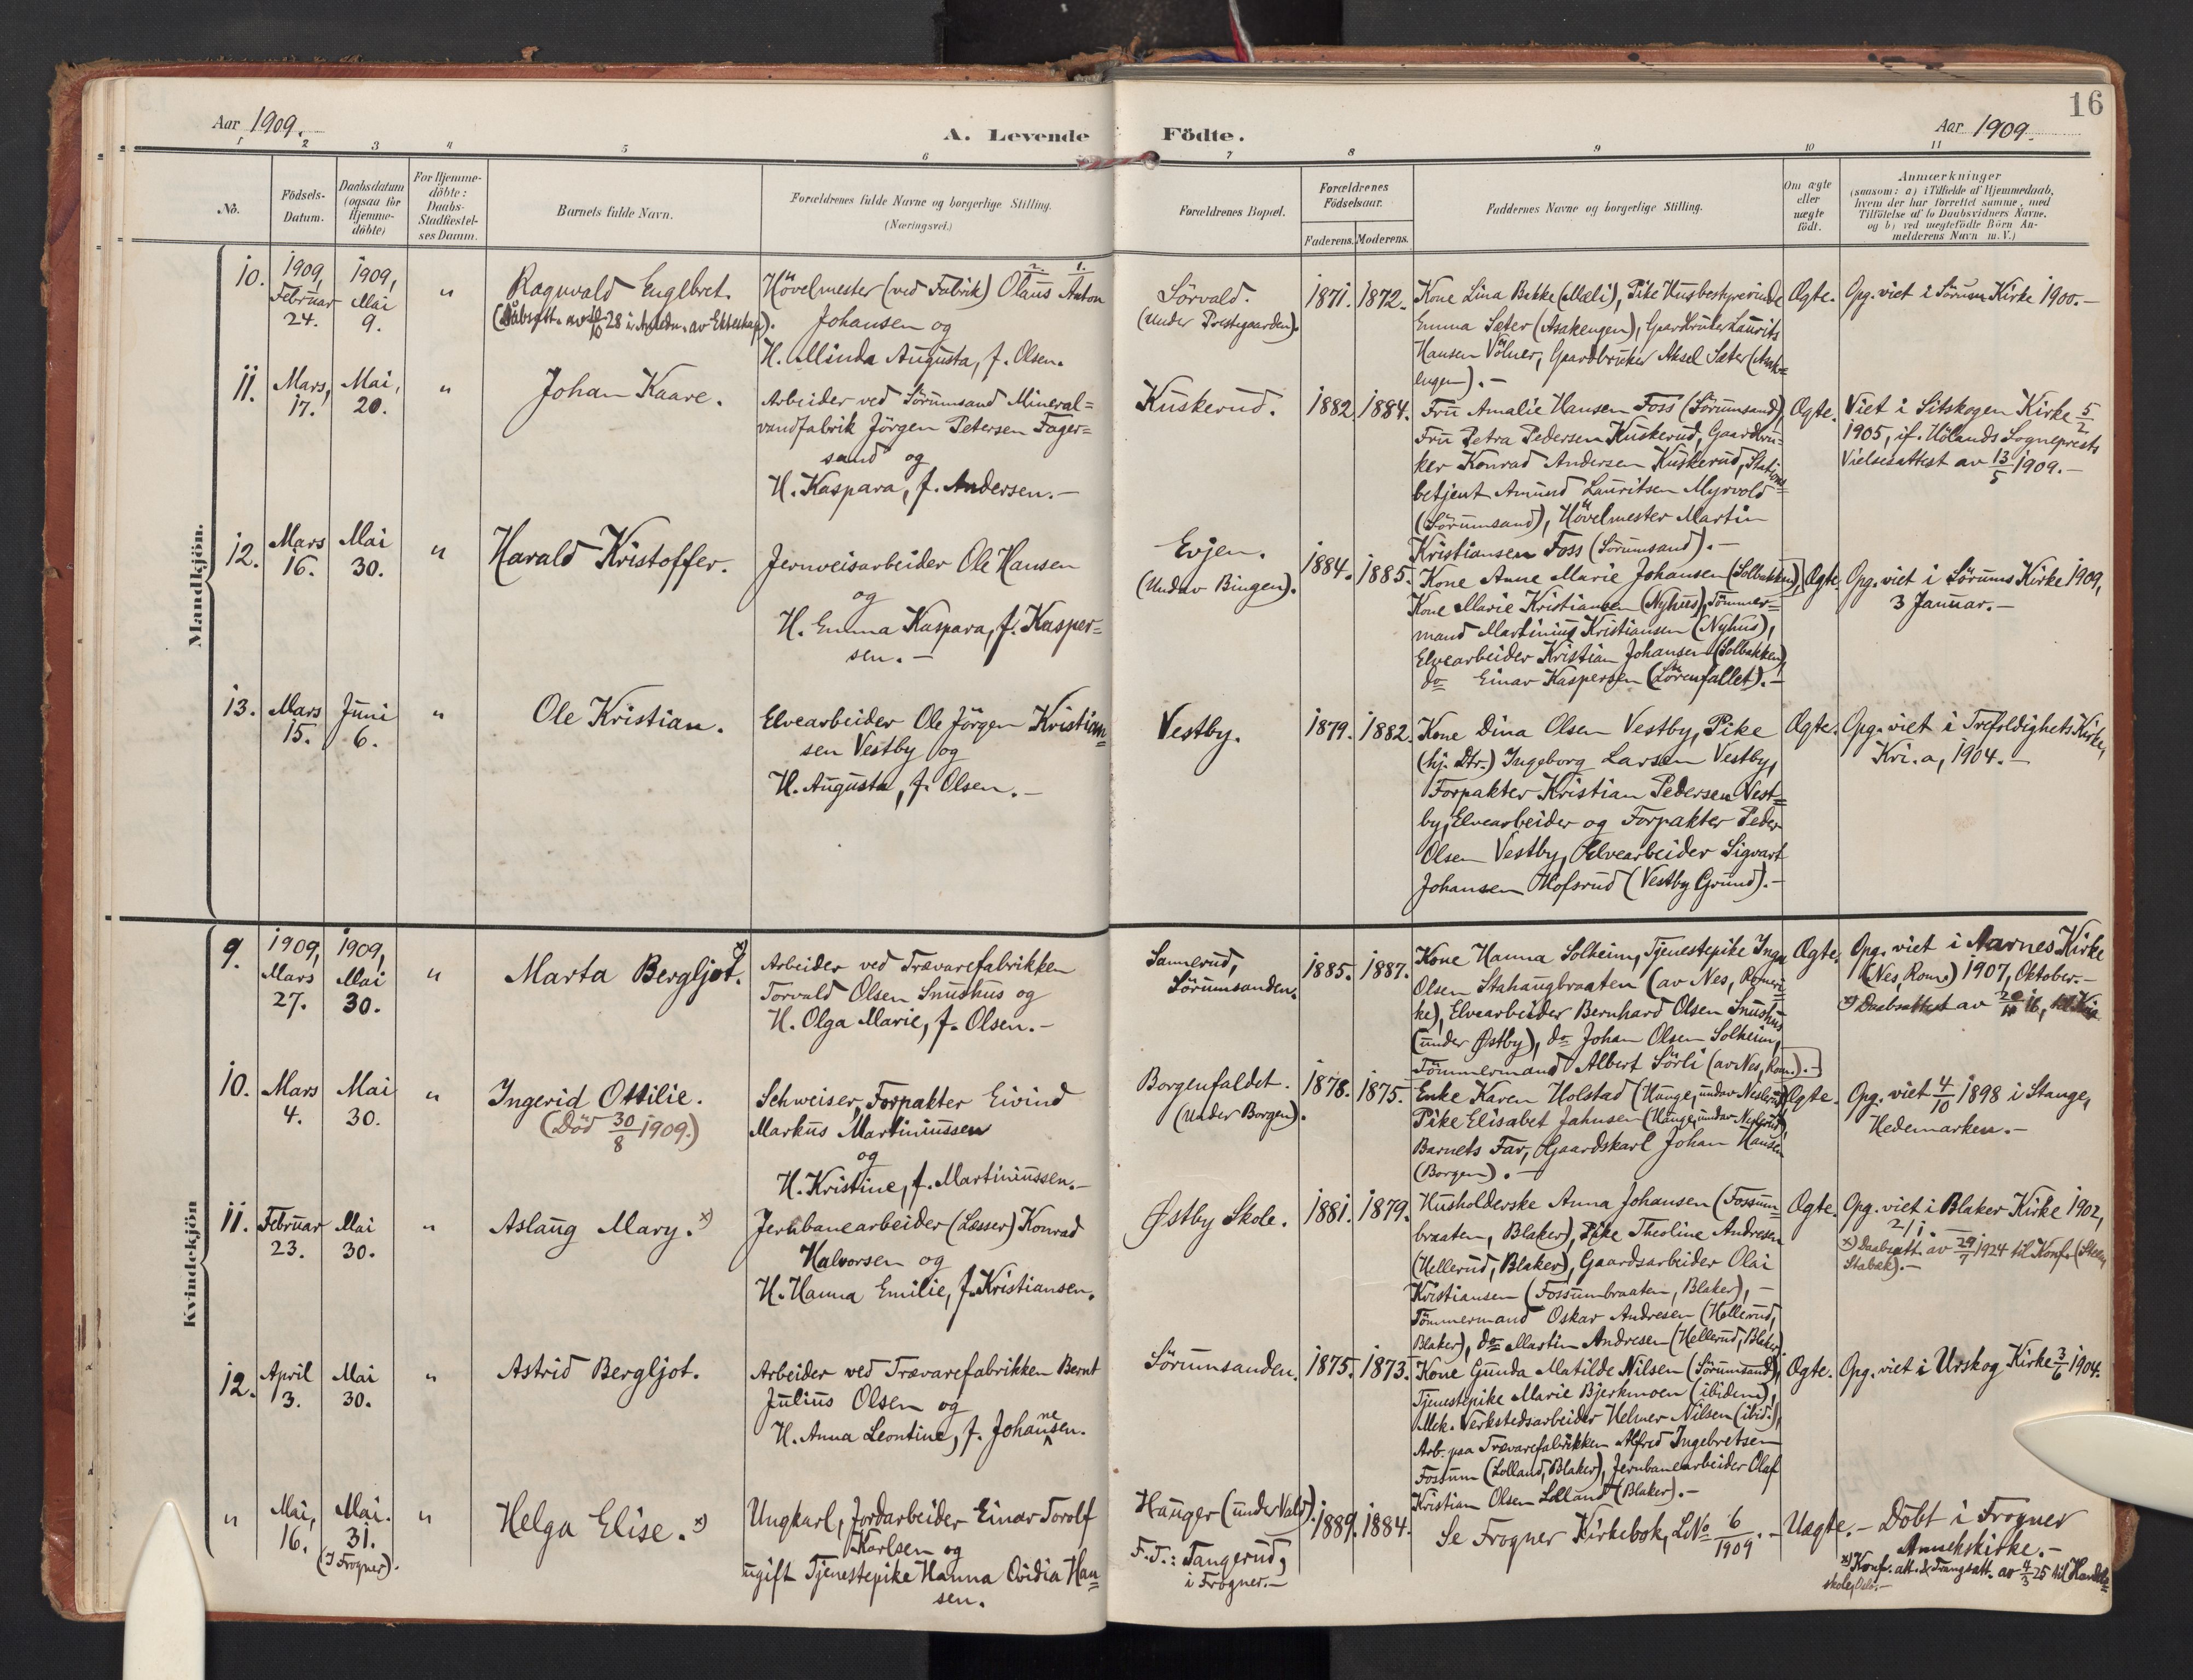 16
Aar 1909.
A. Levende Födte.
Aar 1909.
1 2 3 4 5 6 7 8 9 10 11
No.
Födsels-
Datum.
Daabsdatum
(ogsaa for
Hjemme-
döbte)
For Hjemme-
döbte:
Daabs-
Stadfæstel-
ses Datum.
Barnets fulde Navn.
Forældrenes fulde Navne og borgerlige Stilling.
(Næringsvei.)
Forældrenes Bopæl.
Forældrenes
Födselsaar.
Faderens. Moderens.
Faddernes Navne og borgerlige Stilling.
Om ægte
eller
uægte
födt.
Anmærkninger
(saasom: a) i Tilfælde af Hjemmedaab,
hvem der har forrettet samme, med
Tilföielse af to Daabsvidners Navne,
og b) ved uægtefödte Börn An-
melderens Navn m.V.)
Mandkjön.
10.
1909,
Februar
24.
1909,
Mai
9.
"
Ragnvald Englbret.
(Dåbsatt. av 28 i Anledn. av Ekteskap).
Hövelmester (ved Fabrik) Olaus Anton
Johansen og
H. Minda Augusta, f. Olsen.
Sörvald.
(Under Prestegaarden).
1871. 1872.
Kone Lina Bekke (Mæli), Pike Husbestyrerinde
Emma Sæter (Asakengen), Gaardbruker Laurits
Hansen Völner, Gaardbruker Aksel Sæter (Asak=
engen).-
Ægte.
Opg. viet i Sörum Kirke 1900.-
11.
Mars,
17.
Mai,
20.
"
Johan Kaare.
Arbeider ved Sörumsand Mineral=
vandfabrik Jörgen Petersen Fager=
sand og
H. Kaspara, f. Andersen.-
Kuskerud.
1882 1884.
Fru Amalie Hansen Foss (Sörumsand),
Fru Petra Pedersen Kuskerud, Gaardbru=
ker Konrad Andersen Kuskerud, Stations=
betjent Amund Lauritsen Myrvold
(Sörumsand), Hövelmester Martin
Kristiansen Foss (Sörumsand).-
Ægte.
Viet i Sitskogen Kirke 5/2
1905, if. Hölands Sogneprests
Vielsesattest av 13/5 1909.-
12.
Mars
16.
Mai
30.
"
Harald Kristoffer.
Jernveisarbeider Ole Hansen
og
H. Emma Kaspara, f. Kasper=
sen.-
Evjen.
(Under Bingen).
1884. 1885.
Kone Anne Marie Johansen (Solbakken),
Kone Marie Kristiansen (Nyhus), Tömmer=
mand Martinius Kristiansen (Nyhus),
Elvearbeider Kristian Johansen (Solbakken),
do Einar Kaspersen (Lörenfallet).-
Ægte.
Opg. viet i Sörums Kirke 1909,
3 Januar.-
13.
Mars
15.
Juni
6.
"
Ole Kristian.
Elvearbeider Ole Jörgen Kristian=
sen Vestby og
H. Augusta, f. Olsen.-
Vestby.
1879. 1882.
Kone Dina Olsen Vestby, Pike
(hj. Dtr.) Ingeborg Larsen Vestby,
Forpakter Kristian Pedersen Vest=
by, Elvearbeider og Forpakter Peder
Olsen Vestby, Elvearbeider Sigvart
Johansen Hofsrud (Vestby Grund).-
Ægte.
Opg. viet i Trefoldighets Kirke,
Kri.a, 1904.-
Kvindekjön
9.
1909,
Mars
27.
1909,
Mai
30.
"
Marta Bergljot. x)
Arbeider ved Trævarefabrikken
Torvald Olsen Snushus og
H. Olga Marie, f. Olsen.-
Sannerud,
Sörumsanden.
1885. 1887.
Kone Hanna Solheim, Tjenestepike Inga
Olsen Stahaugbraaten (av Nes, Romeri=
ke), Elvearbeider Bernhard Olsen Snushus
(under Østby), do Johan Olsen Solheim,
Tömmermand Albert Sörli (av Nes, Rom.).-
Ægte.
Opg. viet i Aarnes Kirke
(Nes, Rome) 1907, Oktober.-
x) Daabsattest av 16,
10.
Mars
4.
Mai
30.
"
Ingerid Ottilie.
(Död 30/8 1909.)
Schweiser, Forpakter Eivind
Markus Martiniussen
og
H. Kristine, f. Martiniussen.-
Borgenfaldet.
(under Borgen).
1878. 1875.
Enke Karen Holstad (Hauge, under)
Pike Elisabet Jahnsen (Hauge, under),
Barnets Far, Gaardskarl Johan Hansen
(Borgen).-
Ægte.
Opg. viet 4/10 1898 i Stange,
Hedemarken.-
11.
Februar
23.
Mai
30.
"
Aslaug Mary. x)
Jernbanearbeider (Læsser) Konrad
Halvorsen og
H. Hanna Emilie, f. Kristiansen.
Østby Skole.
1881. 1879.
Husholderske Anna Johansen (Fossum=
braaten, Blaker), Pike Theoline Andresen
(Hellerud, Blaker), Gaardsarbeider Olai
Kristiansen (Fossumbraaten, Blaker),-
Tömmermand Oskar Andresen (Hellerud,
Blaker), do Martin Andresen (Hellerud, Blaker).
Ægte.
Opg. viet i Blaker Kirke 1902,
2/1.
x) Daabsatt. av 29/7 1924 til Konf. (
Stabæk).-
12.
April
3.
Mai
30.
"
Astrid Bergljot.
Arbeider ved Trævarefabrikken Bernt
Julius Olsen og
H. Anna Leontine, f. Johannesen.
Sörumsanden.
1875. 1873.
Kone Gunda Matilde Nilsen (Sörumsand),
Tjenestepike Marie Bjerkmoen (ibidem),
Mek. Verkstedsarbeider Helmer Nilsen (ibid.),
Arb. paa Trævarefabrikken Alfred Ingebretsen
Fossum (Lolland, Blaker), Jernbanearbeider Olaf
Kristian Olsen Lolland (Blaker).-
Ægte.
Opg. viet i Urskog Kirke 3/6 1904.
"
Mai,
16.
Mai.
31.
(I Frogner).
"
Helga Elise. x)
Ungkarl, Jordarbeider Einar Torolf
Karlsen og
ugift Tjenestepike Hanna Ovidia Han=
sen.
Hauger (under Vald).
F. T.: Tangerud,
i Frogner.-
1889. 1884.
Se Frogner Kirkebok, LNo 6/1909.-
Uægte.-
Döbt i Frogner
Annekskirke.-
x) Konf. att. & Trangsatt. av 4/3 25 til Handels=
skole, Oslo.-